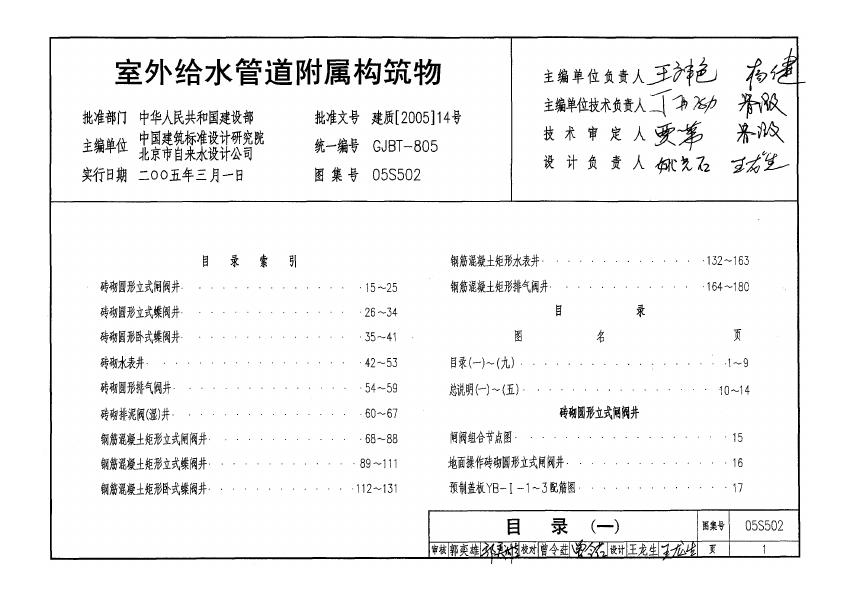 室外给水管道附属构筑物
批准部门 中华人民共和国建设部 批准文号 建质[2005]14号
主编单位 中国建筑标准设计研究院 北京市自来水设计公司 统一编号 GJBT-805
实行日期 二〇〇五年三月一日 图集号 05S502
主编单位负责人
主编单位技术负责人
技术审定人
设计负责人
目录索引
砖砌圆形立式闸阀井 15~25
砖砌圆形立式蝶阀井 26~34
砖砌圆形卧式蝶阀井 35~41
砖砌水表井 42~53
砖砌圆形排气阀井 54~59
砖砌排泥阀(湿)井 60~67
钢筋混凝土矩形立式闸阀井 68~88
钢筋混凝土矩形立式蝶阀井 89~111
钢筋混凝土矩形卧式蝶阀井 112~131
钢筋混凝土矩形水表井 132~163
钢筋混凝土矩形排气阀井 164~180
目录
图名 页
目录(一)~(九) 1~9
总说明(一)~(五) 10~14
砖砌圆形立式闸阀井
闸阀组合节点图 15
地面操作砖砌圆形立式闸阀井 16
预制盖板YB-Ⅰ-1~3配筋图 17
目录(一) 图集号 05S502
审核 郭奕雄 校对 曾令茲 设计 王龙生 王龙生 页 1